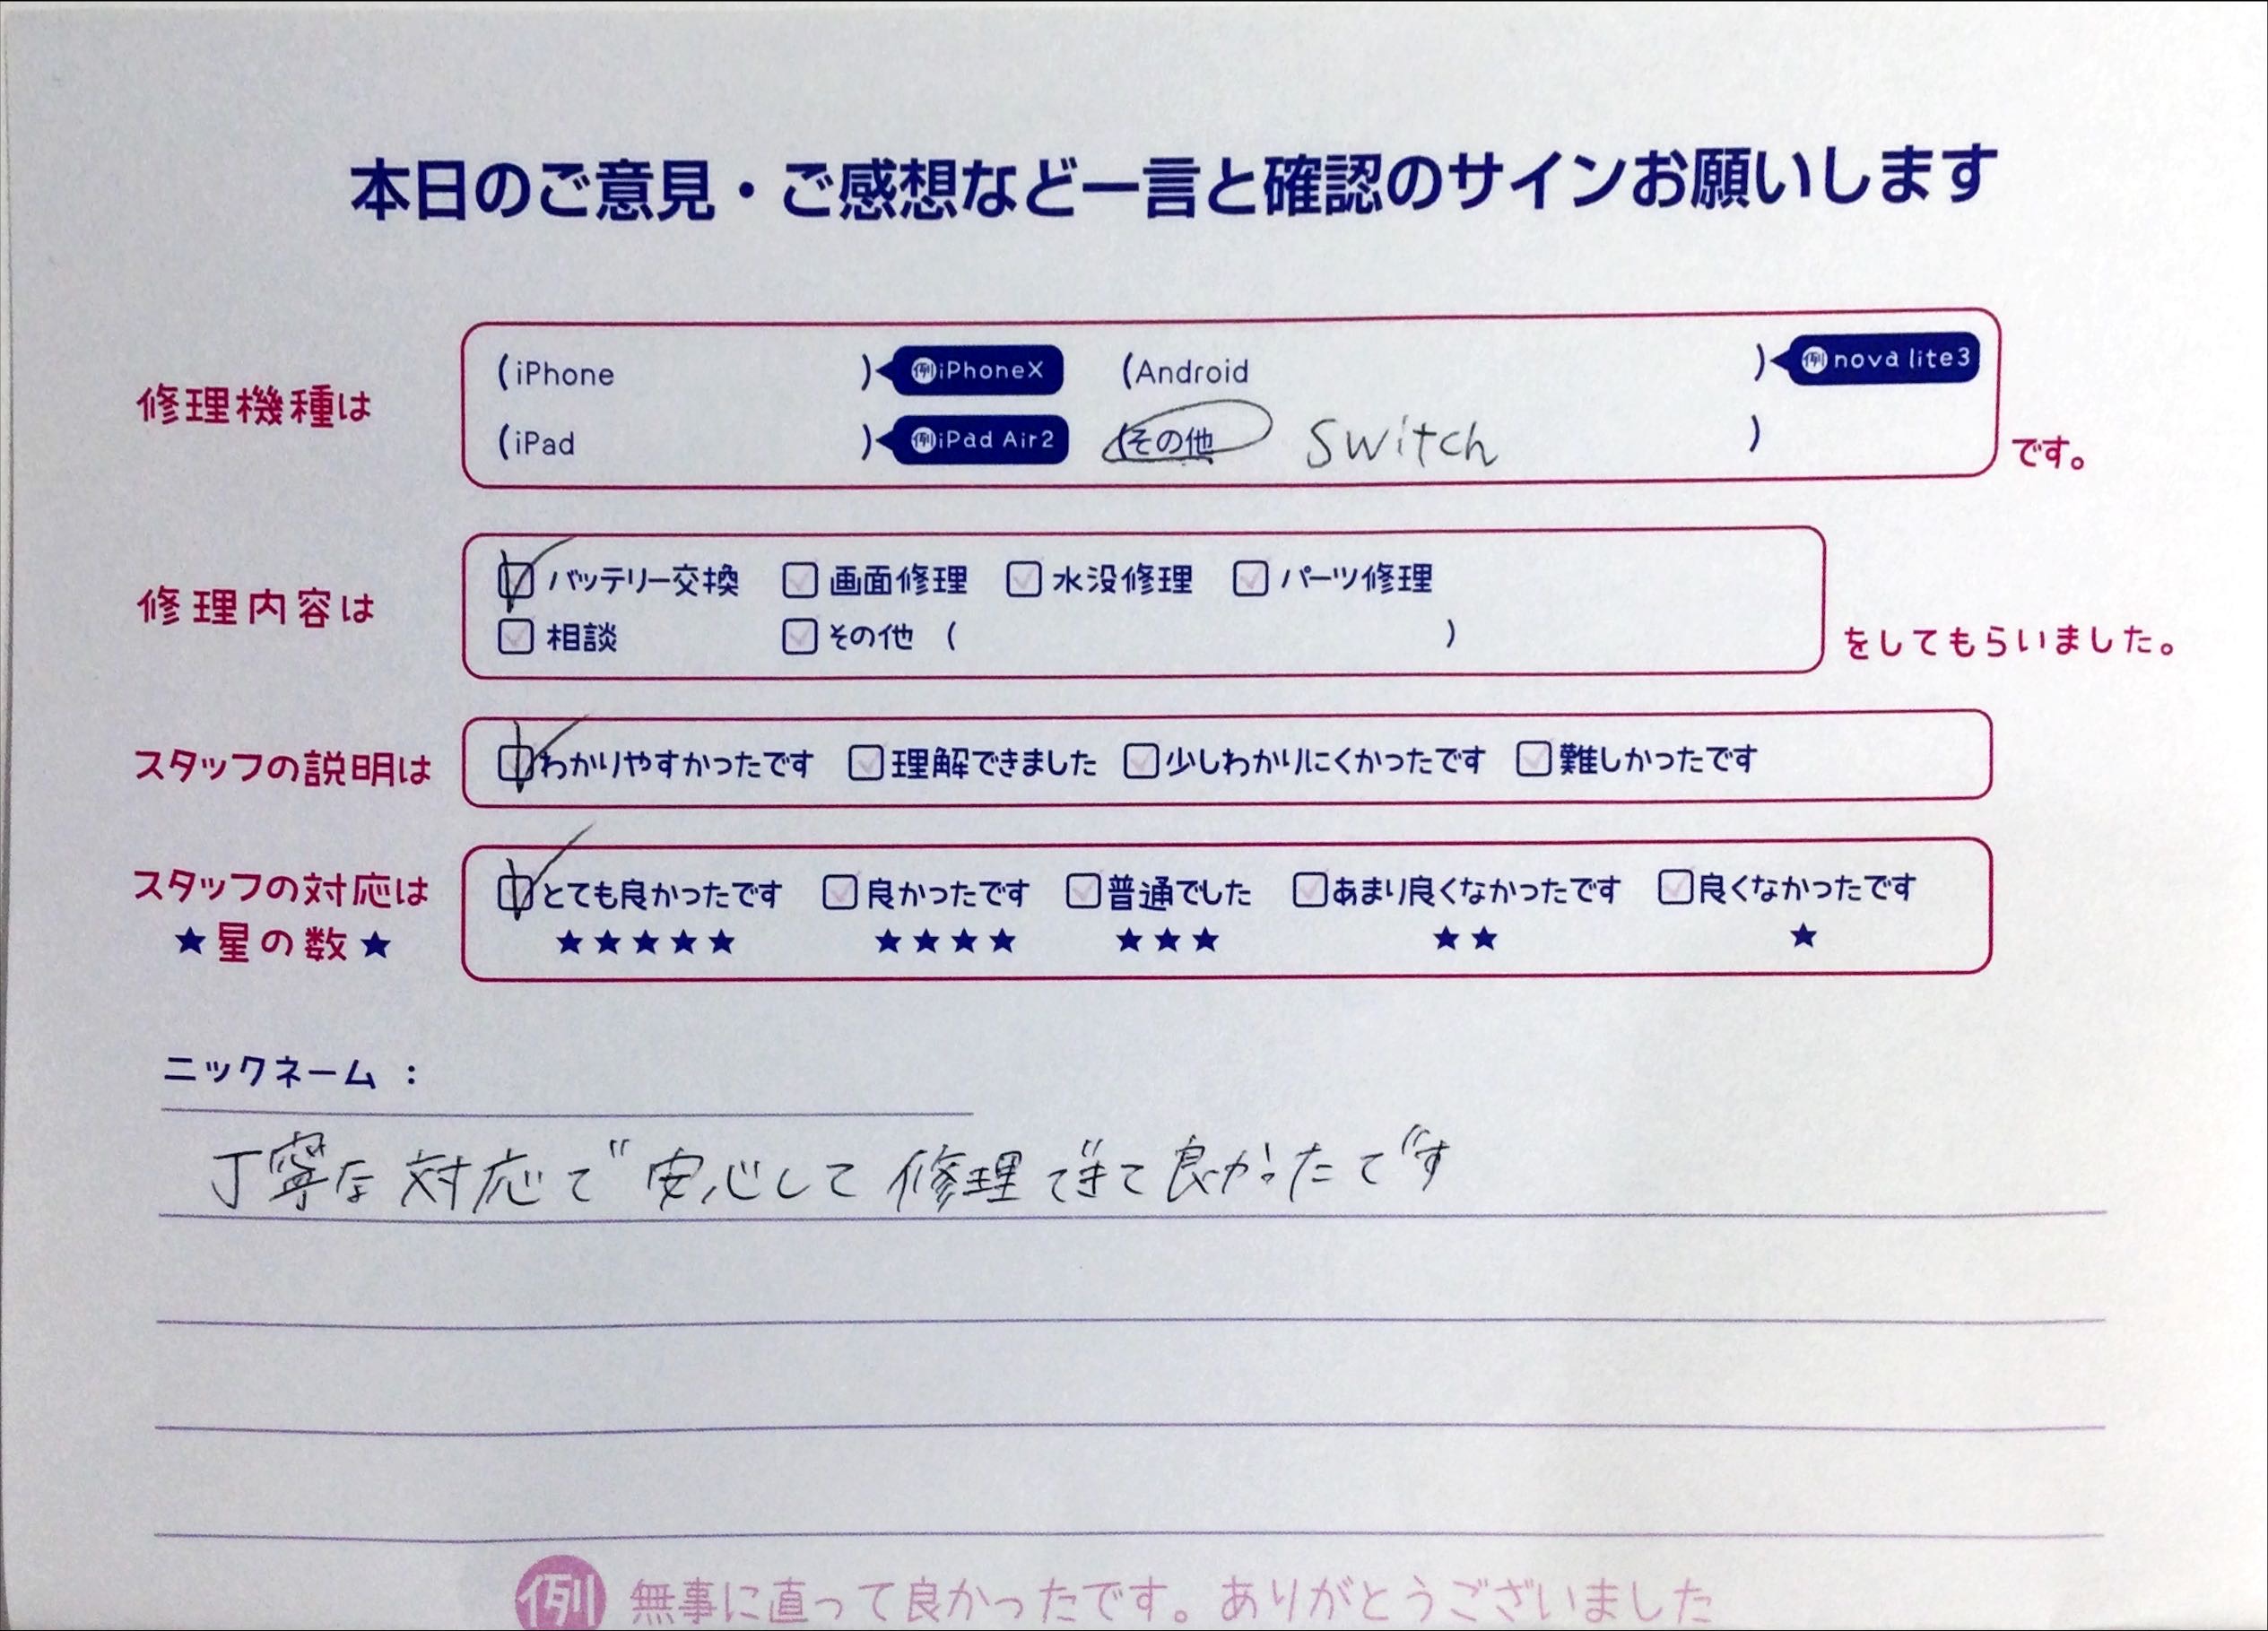 本日のご意見・ご感想など一言と確認のサインお願いします
修理機種は
(iPhone ) 例iPhoneX (Android ) 例nova lite3
(iPad ) 例iPad Air2 (その他 Switch ) です。
修理内容は
バッテリー交換 画面修理 水没修理 パーツ修理
相談 その他 ( ) をしてもらいました。
スタッフの説明は わかりやすかったです 理解できました 少しわかりにくかったです 難しかったです
スタッフの対応は とても良かったです 良かったです 普通でした あまり良くなかったです 良くなかったです
★星の数★ ★★★★★ ★★★★ ★★★ ★★ ★
ニックネーム :
丁寧な対応で安心して修理できて良かったです
例 無事に直って良かったです。ありがとうございました